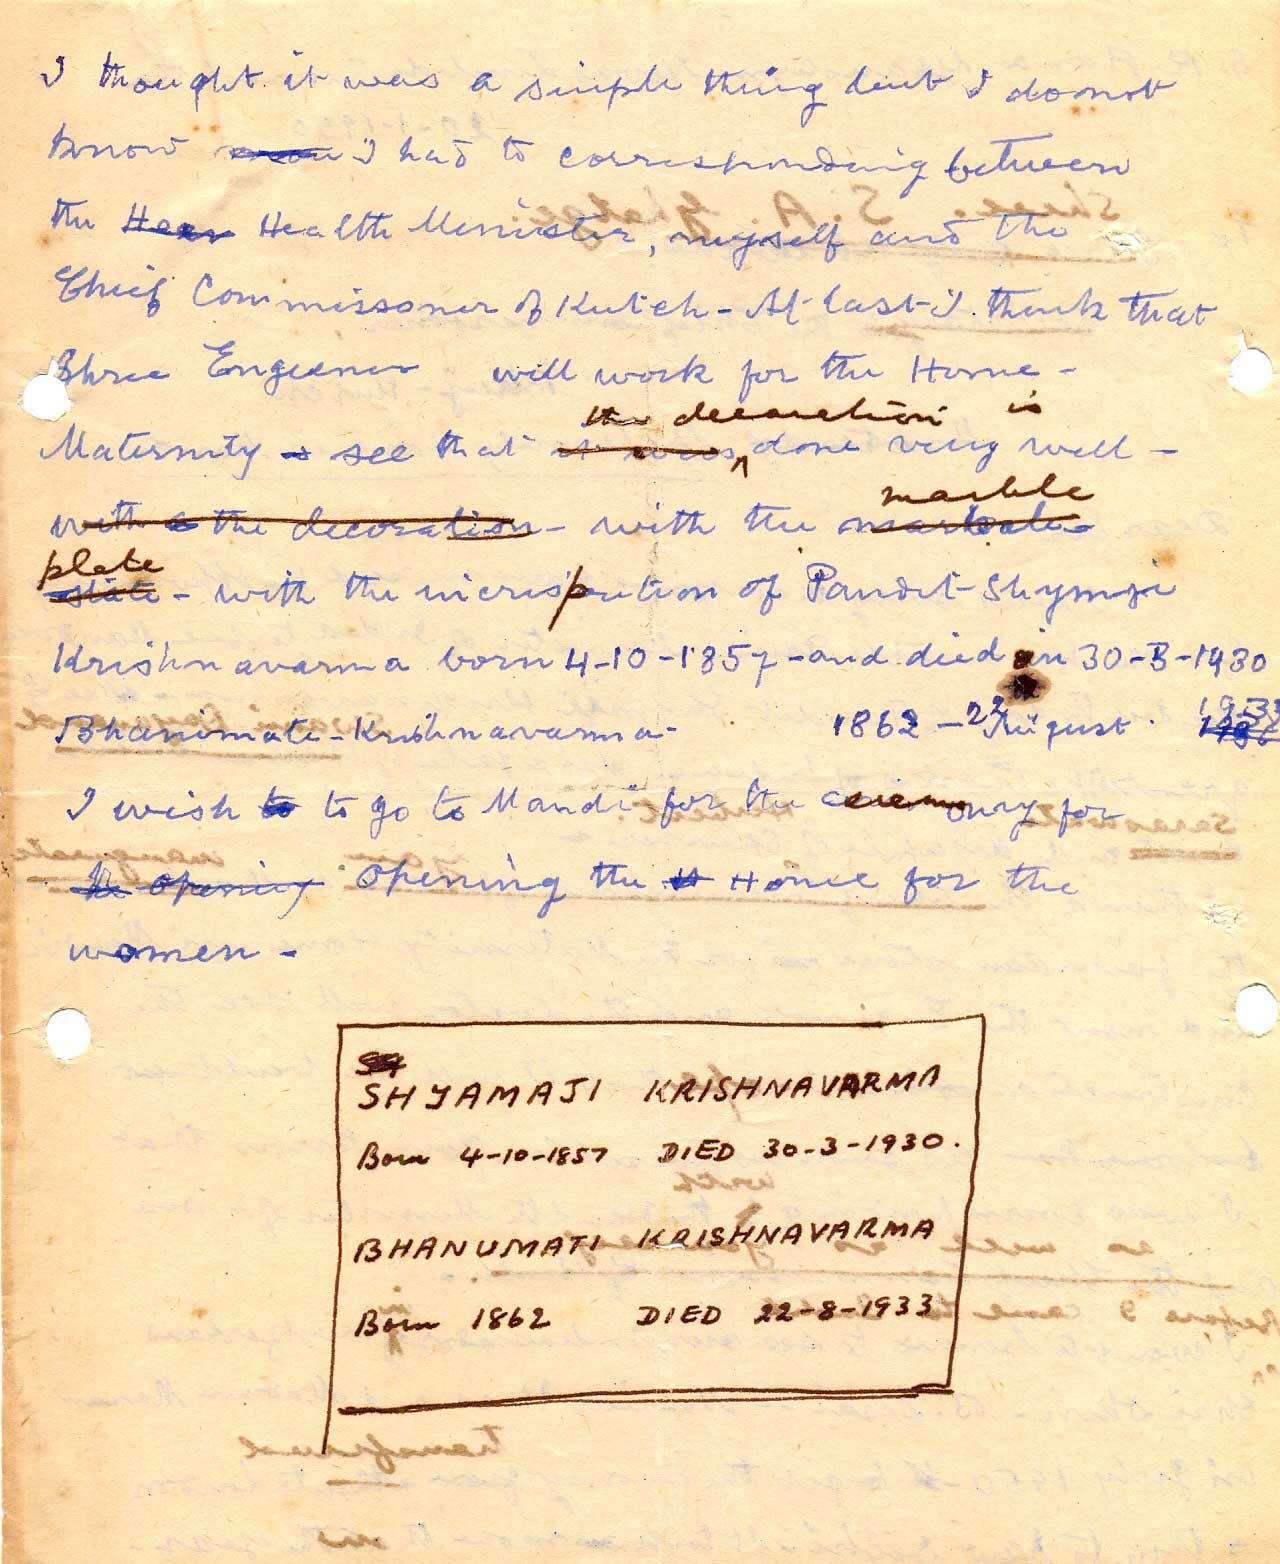 I thought it was a simple thing but I do not
know I had to corresponding between
the Health Minister, myself and the
Chief Commissoner of Kutch - At last I think that
Shree Engieener will work for the Home -
Maternity & see that it was
the decoration is
done very well -
with the decoration - with the marble
plate
state - with the incription of Pandit Shymji
Krishnavarma born 4-10-1857 - and died in 30-3-1930
Bhanimati - Krishnavarma - 1862 - 22 August 1933
I wish to to go to Mandi for the ceremony for
the opening opening the Home for the
women -
SHYAMAJI KRISHNAVARMA
Born 4-10-1857 DIED 30-3-1930.
BHANUMATI KRISHNAVARMA
Born 1862 DIED 22-8-1933